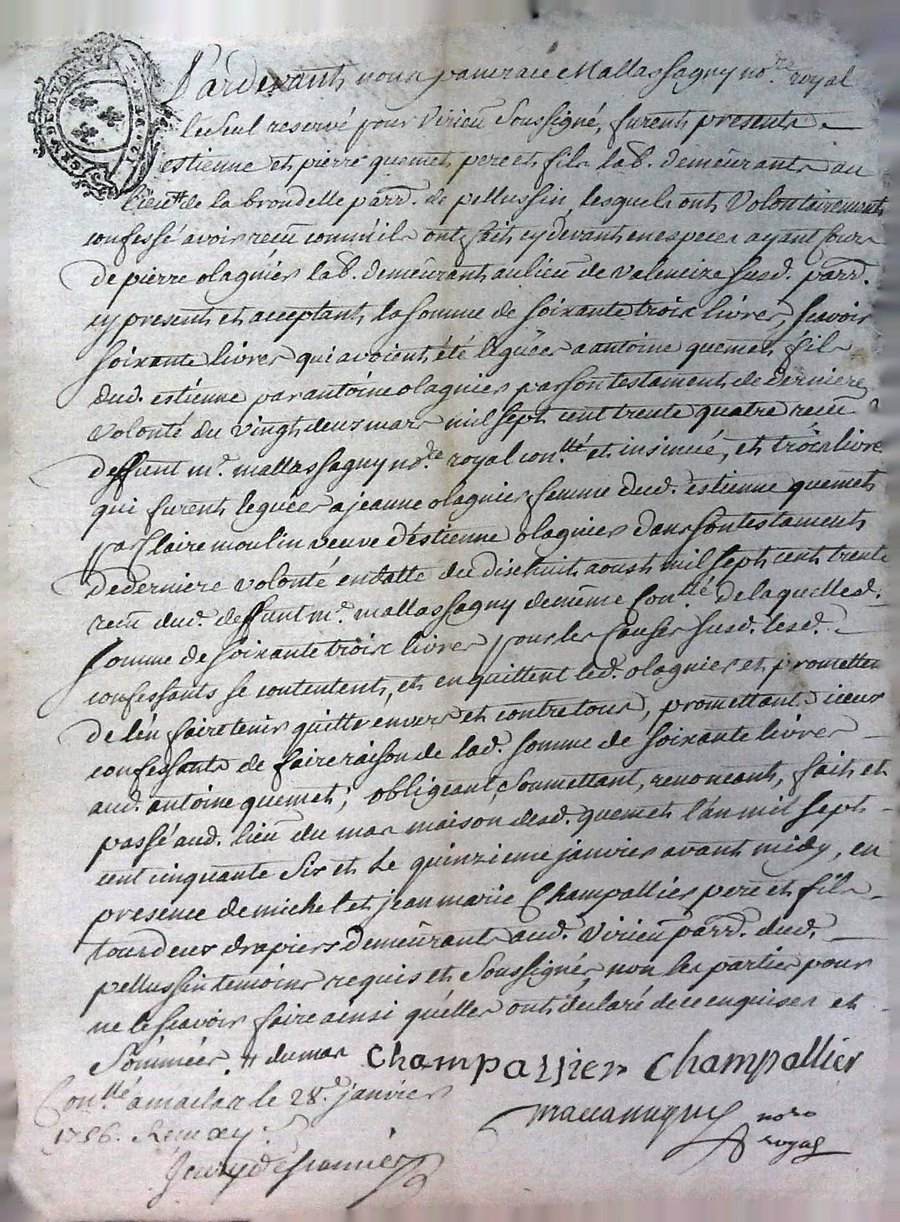 GEN DE LYON
Pardevant nous pancrace Mallassagny no.re royal
le seul reservé pour Virieu soussigné, furent presents
estienne et pierre quemet pere et fils lab. demeurants au
lieu de la brondelle parr. de pellussin, lesquels ont Volontairement
confessé avoir recû comm'ils ont fait cy devant en especes ayant cours
de pierre olagnier lab. demeurant au lieu de valencize susd. parr.
cy present et acceptant, la somme de soixante trois livres, scavoir
soixante livres qui avoient été leguées a antoine quemet fils
dud. estienne par antoine olagnier par son testament de derniere
Volonté du vingt deux mars mil sept cent trente quatre recû
deffunt m.e mallassagny no.re royal con.llé et insinué, et trois livres
qui furent leguées a jeanne olagnier femme dud. estienne quemet
pa Claire moulin veuve d'estienne olagnier dans son testament
de derniere volonté en datte du dixhuit aoust mil sept cent trente
recû dud. deffunt m.e mallassagny de même Con.llé de laquelle d.
somme de soixante trois livres pour les Causes susd. lesd.
confessants se contentent, et en quittent led. olagnier et promettent
de l'en faire tenir quitte envers et contre tous, promettant iceux
confessants de faire raison de lad. somme de soixante livres
aud. antoine quemet; obligeant, soumettant, renonceant, fait et
passé aud. lieu du mas maison desd. quemet l'an mil sept
cent cinquante six et le quinzieme janvier avant midy, en
presence de michel et jean marie Champallier pere et fils
tous deux drapiers demeurants aud. Virieu parr. dud.
pellussin temoins requis et soussignés, non les parties pour
ne le scavoir faire ainsi qu'elles ont declaré de ce enquises et
sommées. // du mas Champallier Champallier
Con.llé a maclas le 28.e janvier
1756. no.re
royal